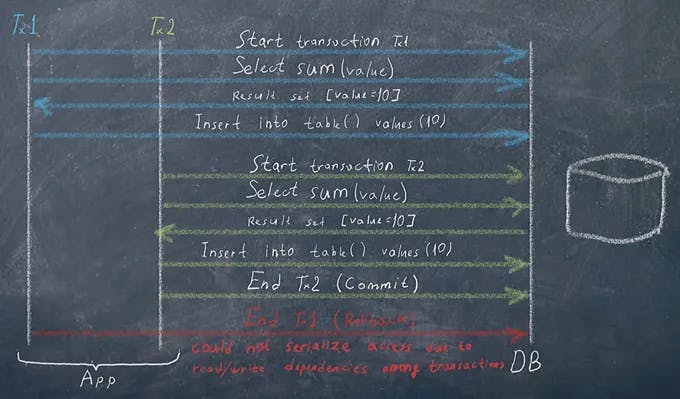 Tx1
Tx2
Start transuction Tx1
Select sum(value)
Result set [value=10]
Insert into table() values(10)
Start transuction Tx2
Select sum(value)
Result set [value=10]
Insert into table() values(10)
End Tx2 (Commit)
End Tx1 (Rollback)
could not serialize access due to
read/write dependencies among transactions
DB
App